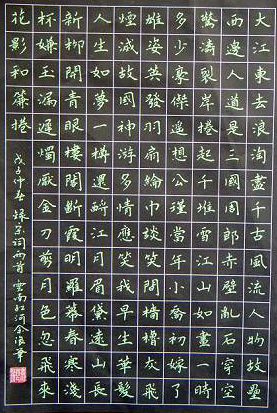 大江東去浪淘盡千古風流人物故壘
西邊人道是三國周郎赤壁亂石穿空
驚濤裂岸捲起千堆雪江山如畫一時
多少豪傑遙想公瑾當年小喬初嫁了
雄姿英發羽扇綸巾談笑間檣櫓灰飛
煙滅故國神遊多情應笑我早生華髮
人生如夢一樽還酹江月眉黛遠山長
新柳開青眼樓閣斷霞明羅幕春寒淺
杯嫌玉漏遲燭厭金刀剪月色忽飛來
花影和簾捲
戊子仲春錄宋詞兩首雲南紅河余